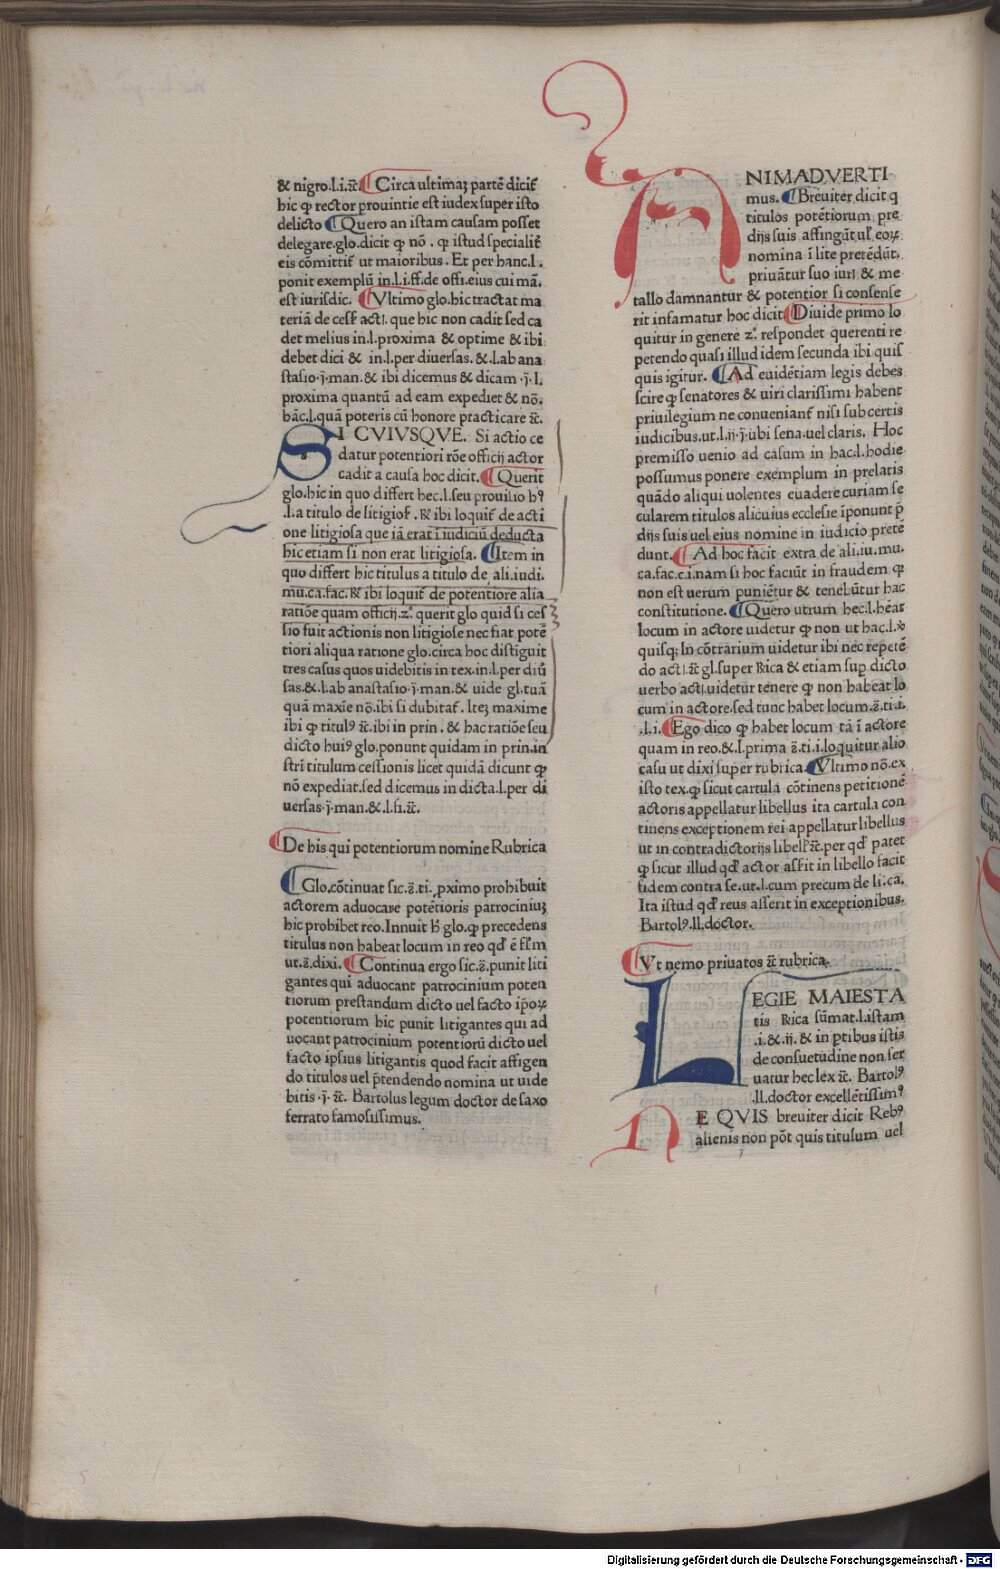 & nigro.l.i.⁊c̄. Circa ultimaꝫ partē dicit̄
hic ꝙ rector prouintie est iudex super isto
delicto Quero an istam causam posset
delegare.glo.dicit ꝙ nō . ꝙ istud specialit̄
eis cōmittit̄ ut maioribus. Et per hanc.l.
ponit exemplū in.l.i.ff.de offi.eius cui mā.
est iurisdic. Vltimo glo.hic tractat ma
teriā de cess̄ actī. que hic non cadit sed ca
det melius in.l.proxima & optime & ibi
debet dici & in.l.per diuersas.&.l.ab ana
stasio.j̄.man.& ibi dicemus & dicam .j̄.l.
proxima quantū ad eam expediet & nō.
hāc.l.quā poteris cū honore practicare ⁊c̄.
SI CVIVSQVE. Si actio ce
datur potentiori rōe officij actor
cadit a causa hoc dicit. Querit
glo.hic in quo differt hec.l.seu prouisio hꝰ
.l.a titulo de litigios̄ . R& ibi loquit̄ de acti
one litigiosa que iā erat ī iudiciū deducta
hic etiam si non erat litigiosa. Item in
quo differt hic titulus a titulo de ali.iudi.
mu.ca.fac.R& ibi loquit̄ de potentiore alia
ratiōe quam officij.2.° querit glo quid si ces
sio fuit actionis non litigiose nec fiat potē
tiori aliqua ratione glo.circa hoc distiguit
tres casus quos uidebitis in tex.in.l.per diū
sas.&.l.ab anastasio.j̄.man.& uide gl.tuā
quā maxīe nō.ibi si dubitat̄. Iteꝫ maxime
ibi ꝙ titulꝰ ⁊c̄.ibi in prin. & hac ratiōe seu
dicto huiꝰ glo.ponunt quidam in prin.in
stri titulum cessionis licet quidā dicunt ꝙ
nō expediat.sed dicemus in dicta.l.per di
uersas.j̄.man.&.l.si.⁊c̄.
De his qui potentiorum nomine Rubrica
Glo.cōtinuat sic.s̄.ti.ꝓximo prohibuit
actorem aduocare potētioris patrociniuꝫ
hic prohibet reo.Innuit h̄ glo.ꝙ precedens
titulus non habeat locum in reo qd̄ ē fl̄m
ut.s̄.dixi. Continua ergo sic.s̄.punit liti
gantes qui aduocant patrocinium poten
tiorum prestandum dicto uel facto ip̄oꝝ
potentiorum hic punit litigantes qui ad
uocant patrocinium potentiorū dicto uel
facto ipsius litigantis quod facit affigen
do titulos uel p̄tendendo nomina ut uide
bitis .j̄. ⁊c̄. Bartolus legum doctor de saxo
ferrato famosissimus.
ANIMADVERTI
mus. Breuiter dicit q
titulos potētiorum pre
dijs suis affingūt ul̄ eoꝝ
nomina ī lite pretēdūt.
priuātur suo iuri & me
tallo damnantur & potentior si consense
rit infamatur hoc dicit. Diuide primo lo
quitur in genere 2.° respondet querenti re
petendo quasi illud idem secunda ibi quis
quis igitur. Ad euidētiam legis debes
scire ꝙ senatores & uiri clarissimi habent
priuilegium ne conueniant̄ nisi sub certis
iudicibus.ut.l.ij.j̄.ubi sena.uel claris. Hoc
premisso uenio ad casum in hac.l.hodie
possumus ponere exemplum in prelatis
quādo aliqui uolentes euadere curiam se
cularem titulos alicuius ecclesie īponunt p̄
dijs suis uel eius nomine in iudicio pretē
dunt. Ad hoc facit extra de ali.iu.mu.
ca.fac.c.i.nam si hoc faciūt in fraudem ꝙ
non est uerum puniētur & tenebūtur hac
constitutione. Quero utrum hec.l.hēat
locum in actore uidetur ꝙ non ut hac.l.ꝟ
quisq; In cōtrarium uidetur ibi nec repetē
do actī.⁊c̄ gl.super Rica & etiam sup dicto
uerbo actī.uidetur tenere ꝙ non habeat lo
cum in actore.sed tunc habet locum.s̄.ti.i.
.l.i. Ego dico ꝙ habet locum tā ī actore
quam in reo.&.l.prima s̄.ti.i.loquitur alio
casu ut dixi super rubrica. Vltimo nō.ex
isto tex.ꝙ sicut cartula cōtinens petitionē
actoris appellatur libellus ita cartula con
tinens exceptionem rei appellatur libellus
ut in contradictorijs libell̄ ⁊c̄.per qd̄ patet
ꝙ sicut illud qd̄ actor asserit in libello facit
fidem contra se.ut.l.cum precum de li.ca.
Ita istud qd̄ reus asserit in exceptionibus.
Bartolꝰ.ll.doctor.
Vt nemo priuatos ⁊c̄ rubrica.
LEGIE MAIESTA
tis Rica sūmat.l.istam
.i.&.ij. & in ꝑtibus istis
de consuetudine non ser
uatur hec lex ⁊c̄. Bartolꝰ
.ll.doctor excellētissimꝰ
NE QVIS breuiter dicit Rebꝰ
alienis non pōt quis titulum uel
Digitalisierung gefördert durch die Deutsche Forschungsgemeinschaft - DFG